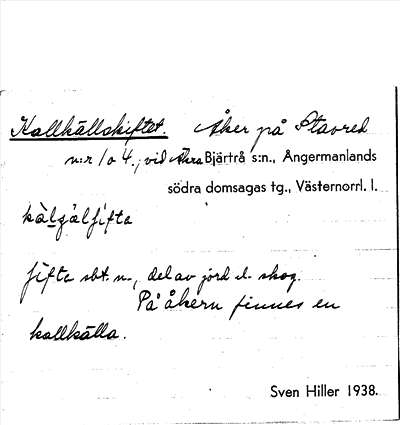 Kallkällskiftet. Åker på Stavred
n:r 1 o 4., vid Åkra Bjärtrå s:n., Ångermanlands
södra domsagas tg., Västernorrl. l.
kàlgälfifta
fifta sbt. n., del av jord el. skog.
På åkern finnes en
kallkälla.
Sven Hiller 1938.